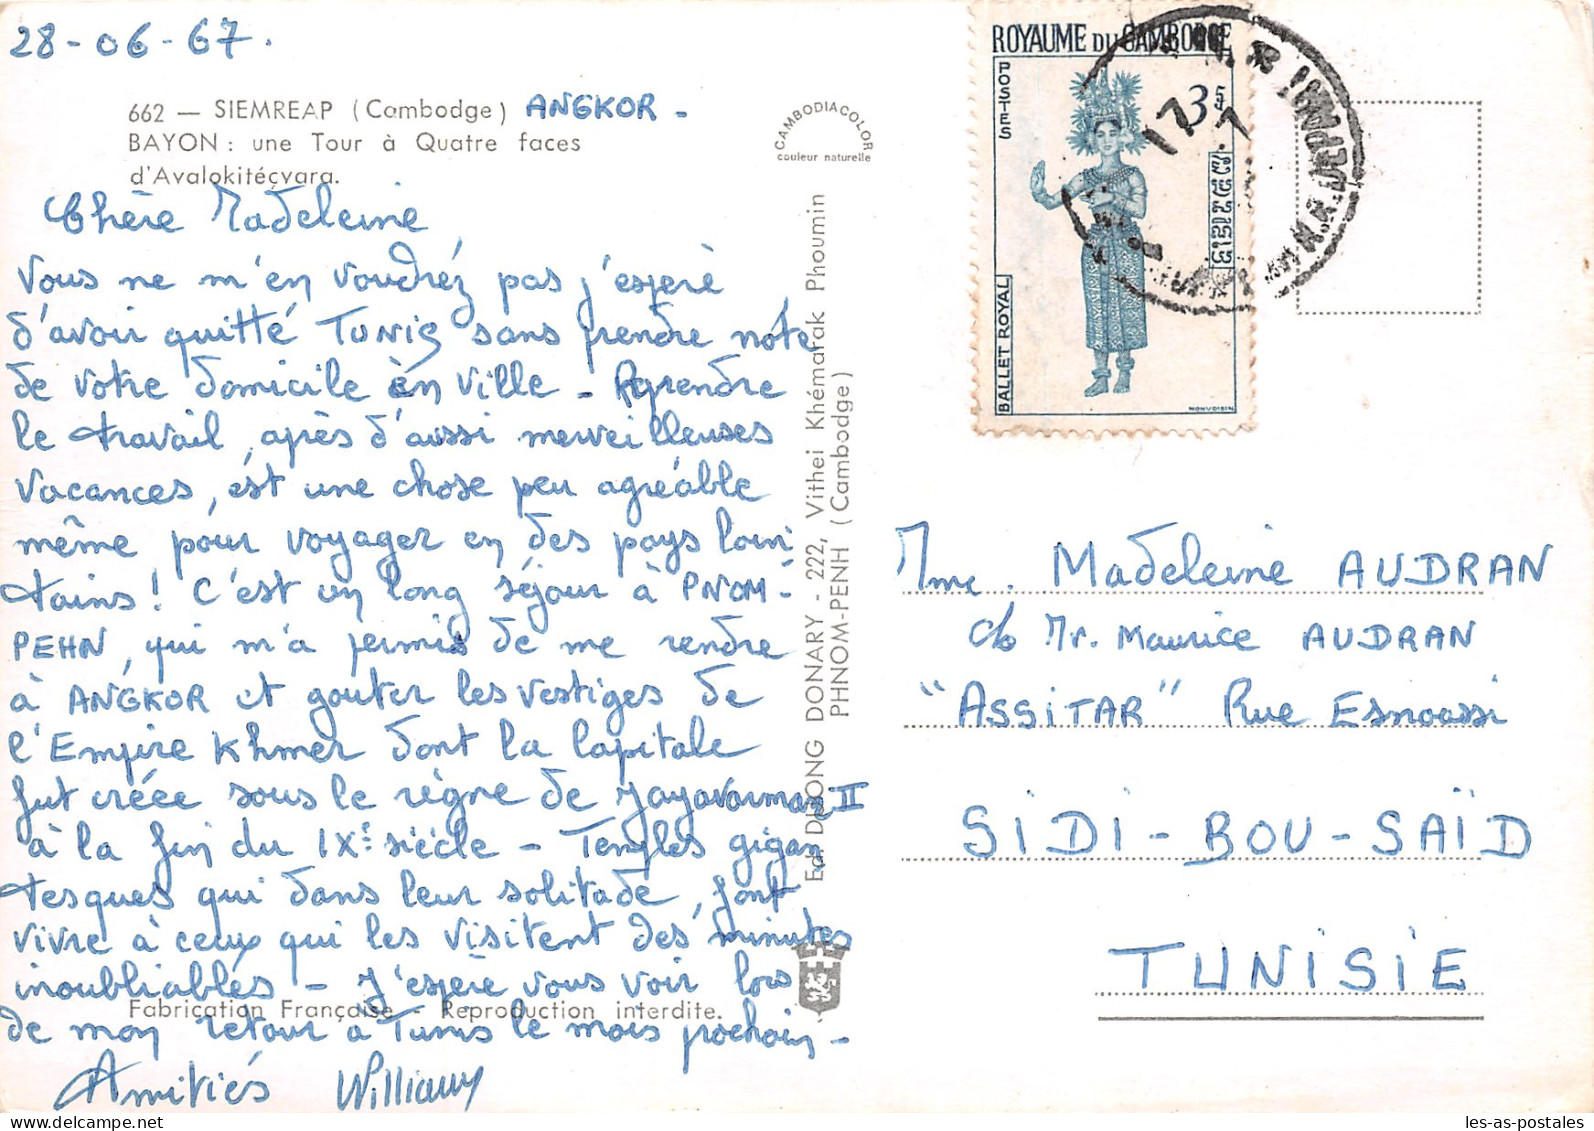 28-06-67.
662 — SIEMREAP (Cambodge) ANGKOR -
BAYON : une Tour à Quatre faces
d'Avalokitéçvara.
CAMBODIACOLOR
couleur naturelle
Chère Madeleine
Vous ne m'en voudréz pas j'espère
d'avoir quitté TUNIS sans prendre note
de votre domicile èn ville - Reprendre
le travail, après d'aussi merveilleuses
vacances, est une chose peu agréable
même pour voyager en des pays loin
tains ! C'est un long séjour à PNOM-
PEHN, qui m'a permis de me rendre
à ANGKOR et gouter les vestiges de
l'Empire Khmer dont la Capitale
fut créée sous le règne de Jayavarman II
à la fin du IXe siècle - Temples gigan
tesques qui dans leur solitude, font
vivre à ceux qui les visitent des minutes
inoubliables - J'espère vous voir lors
de mon retour à Tunis le mois prochain -
Amitiés William
Fabrication Française - Reproduction interdite.
Ed. DUONG DONARY - 222, Vithei Khémarak Phoumin
PHNOM-PENH (Cambodge)
ROYAUME DU CAMBODGE
POSTES
3
BALLET ROYAL
MONVOISIN
17
Mme. Madeleine AUDRAN
c/o Mr. Maurice AUDRAN
"ASSITAR" Rue Esnoassi
SIDI-BOU-SAÏD
TUNISIE
les-as-postales